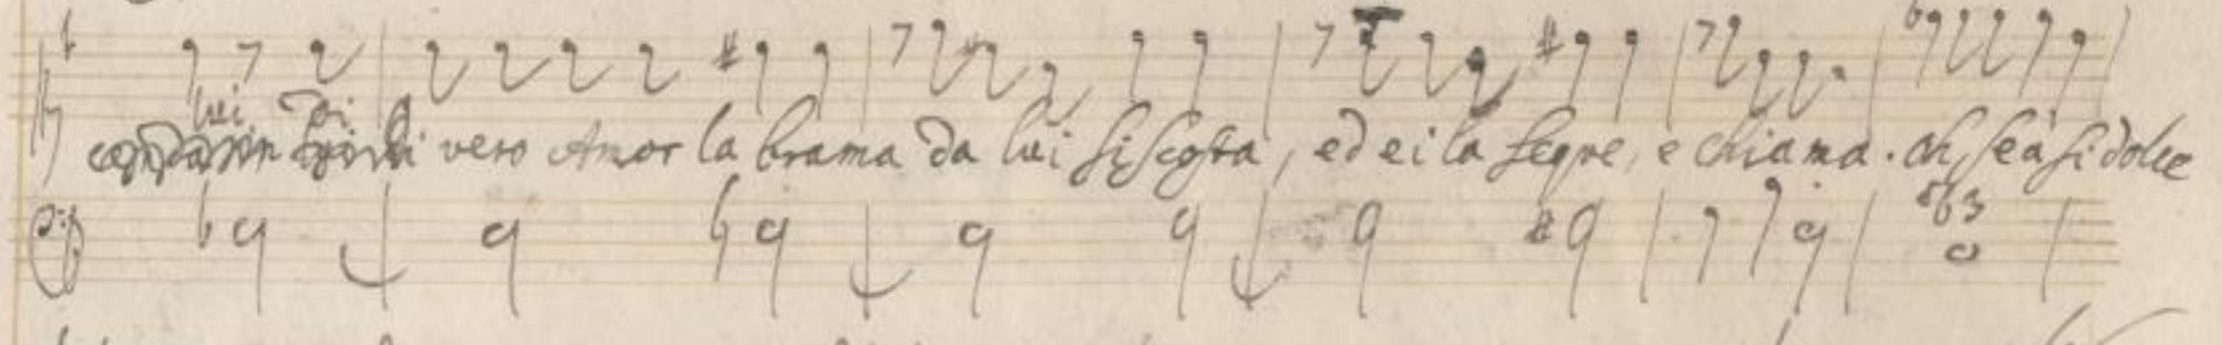 lui poi
di vero Amor la brama da lui si scosta, ed ei la segue, e chiama. Ah se à si dolce